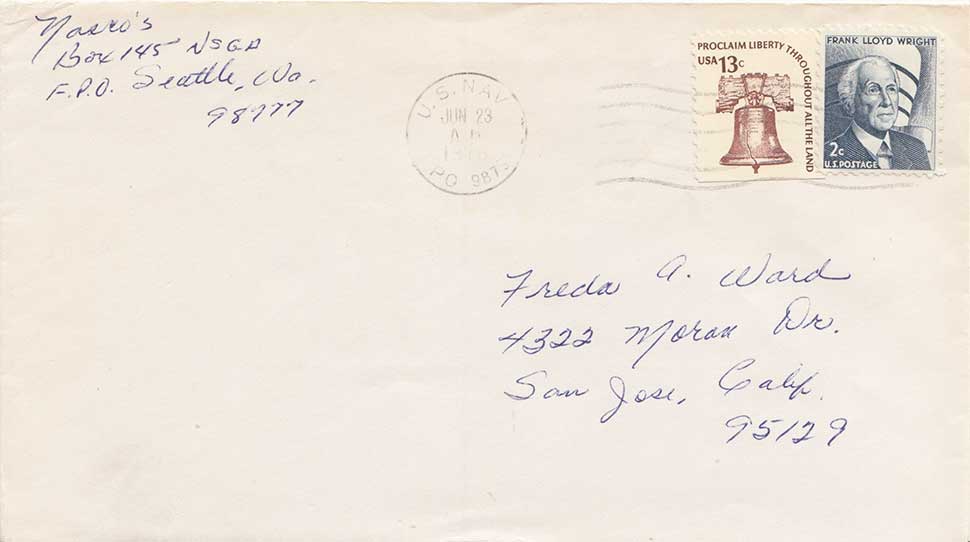 Nasro's
Box 145 NSGA
F.P.O. Seattle, Wa.
98777
U.S. NAV
JUN 23
PO 987
PROCLAIM LIBERTY THROUGHOUT ALL THE LAND
USA 13c
FRANK LLOYD WRIGHT
2c
U.S. POSTAGE
Freda A. Ward
4322 Moran Dr.
San Jose, Calif.
95129